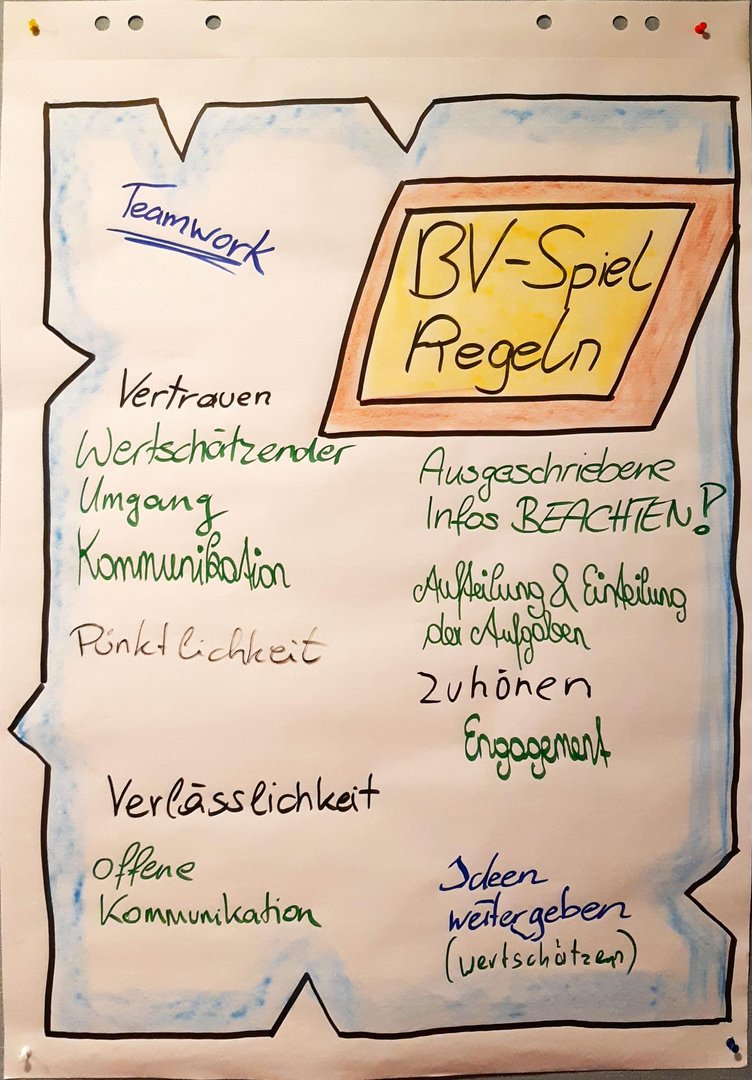 Teamwork
BV-Spiel
Regeln
Vertrauen
Wertschätzender
Umgang
Kommunikation
Pünktlichkeit
Verlässlichkeit
Offene
Kommunikation
Ausgeschriebene
Infos BEACHTEN!
Aufteilung & Einteilung
der Aufgaben
Zuhören
Engagement
Ideen
weitergeben
(wertschätzen)